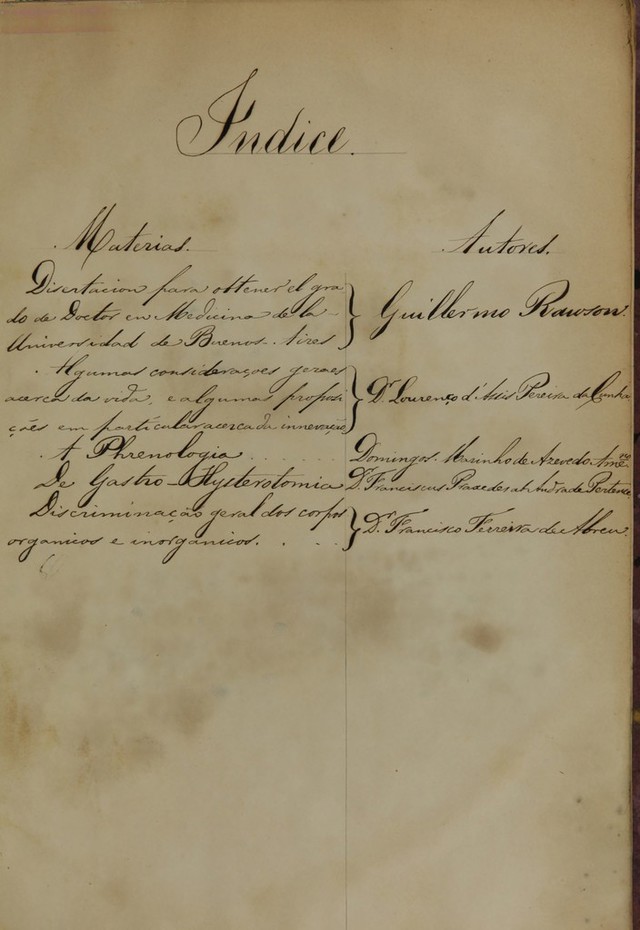 Indice.
Materias. Autores.
Disertacion para obtener el gra-
do de Doctor en Medicina de la
Universidad de Buenos-Aires } Guillermo Rawson.
Algumas considerações geraes
acerca da vida, e algumas proposi
ções em particular acerca da innevação } Dr. Lourenço d'Assis Pereira da Cunha
A Phrenologia . . . . . . Domingos Marinho de Azevedo Ameno
De Gastro-Hysterotomia Dr. Franciscus Praxedes ab Andrade Pertence
Discriminação geral dos corpos
organicos e inorganicos. . . . } Dr. Francisco Ferreira de Abreu.